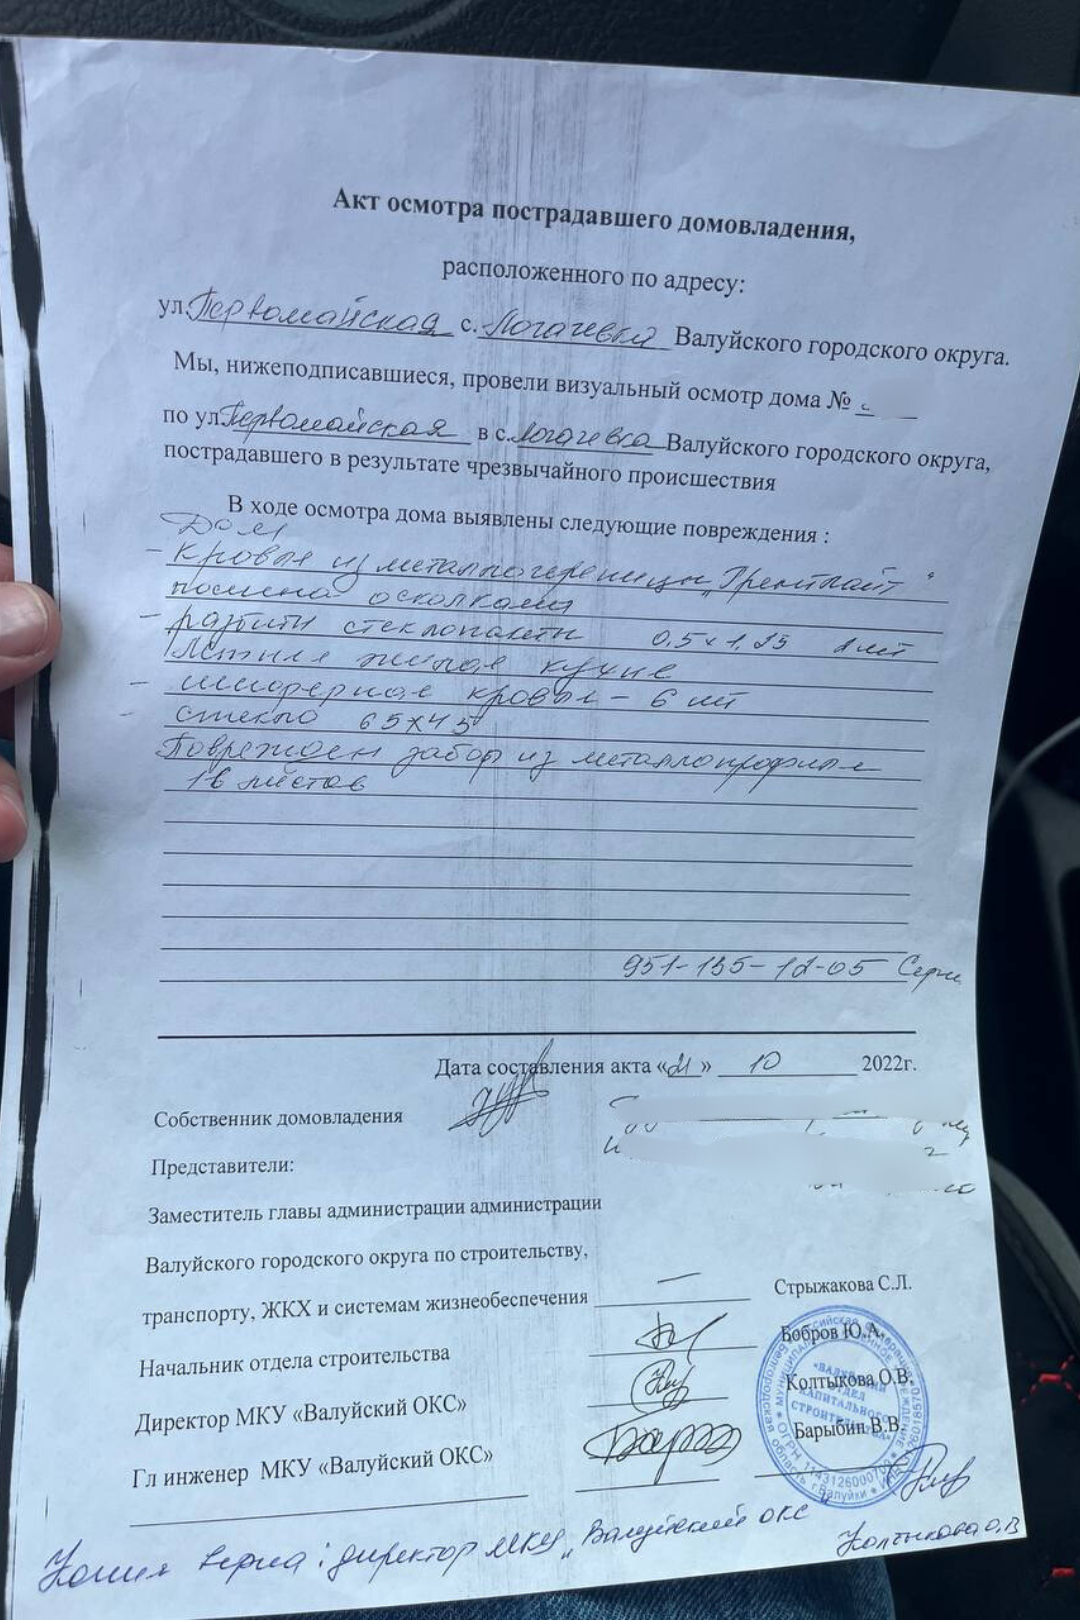 Акт осмотра пострадавшего домовладения,
расположенного по адресу:
ул. Первомайская с. Логачевка Валуйского городского округа.
Мы, нижеподписавшиеся, провели визуальный осмотр дома №
по ул. Первомайская в с. Логачевка Валуйского городского округа,
пострадавшего в результате чрезвычайного происшествия
В ходе осмотра дома выявлены следующие повреждения :
Дом
- кровля из металлочерепицы
осколками
- разбиты стеклопакеты 0,5х1,35
Летняя жилая кухне
- шиферная кровля - 6 шт
- стекло 65х45
Поврежден забор из металлопрофиля
16 листов
951-135-12-05
Дата составления акта « » 10 2022г.
Собственник домовладения
Представители:
Заместитель главы администрации администрации
Валуйского городского округа по строительству,
транспорту, ЖКХ и системам жизнеобеспечения — Стрыжакова С.Л.
Начальник отдела строительства Бобров Ю.А.
Директор МКУ «Валуйский ОКС» Колтыкова О.В.
Гл инженер МКУ «Валуйский ОКС» Барыбин В.В.
«ВАЛУЙСКИЙ
ОТДЕЛ
КАПИТАЛЬНОГО
СТРОИТЕЛЬСТВА»
Копия верна: директор МКУ „Валуйский ОКС" Колтыкова О.В